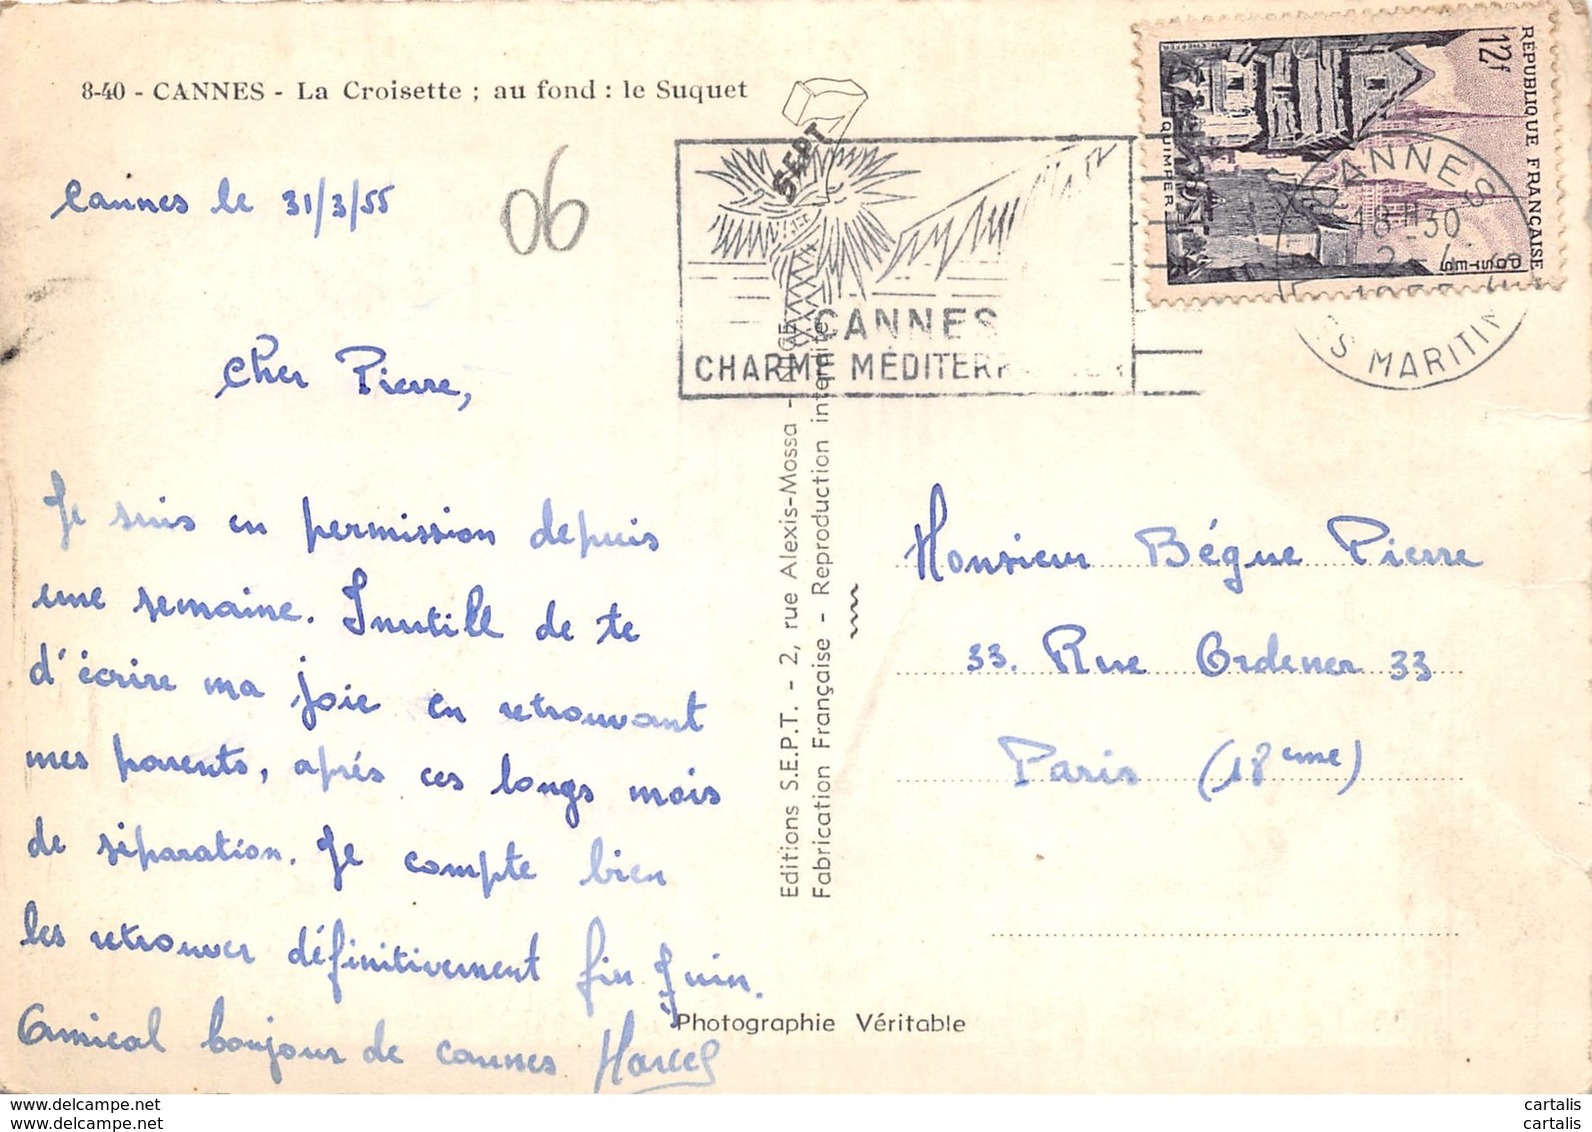 8-40 - CANNES - La Croisette ; au fond : le Suquet
06
Cannes le 31/3/55
Cher Pierre,
Je suis en permission depuis
une semaine. Inutile de te
d'écrire ma joie en retrouvant
mes parents, après ces longs mois
de séparation. Je compte bien
les retrouver définitivement fin Juin.
Amical bonjour de Cannes Marcel
SEPT
Editions S.E.P.T. - 2, rue Alexis-Mossa - NICE
Fabrication Française - Reproduction interdite
Photographie Véritable
CANNES
CHARME MÉDITERR
REPUBLIQUE FRANÇAISE
12f
POSTES
QUIMPER
CANNES
18H30
2-4
MARITIM
Monsieur Bégue Pierre
33. Rue Ordener 33
Paris (18eme)
cartalis
www.delcampe.net
cartalis
www.delcampe.net
cartalis
cartalis